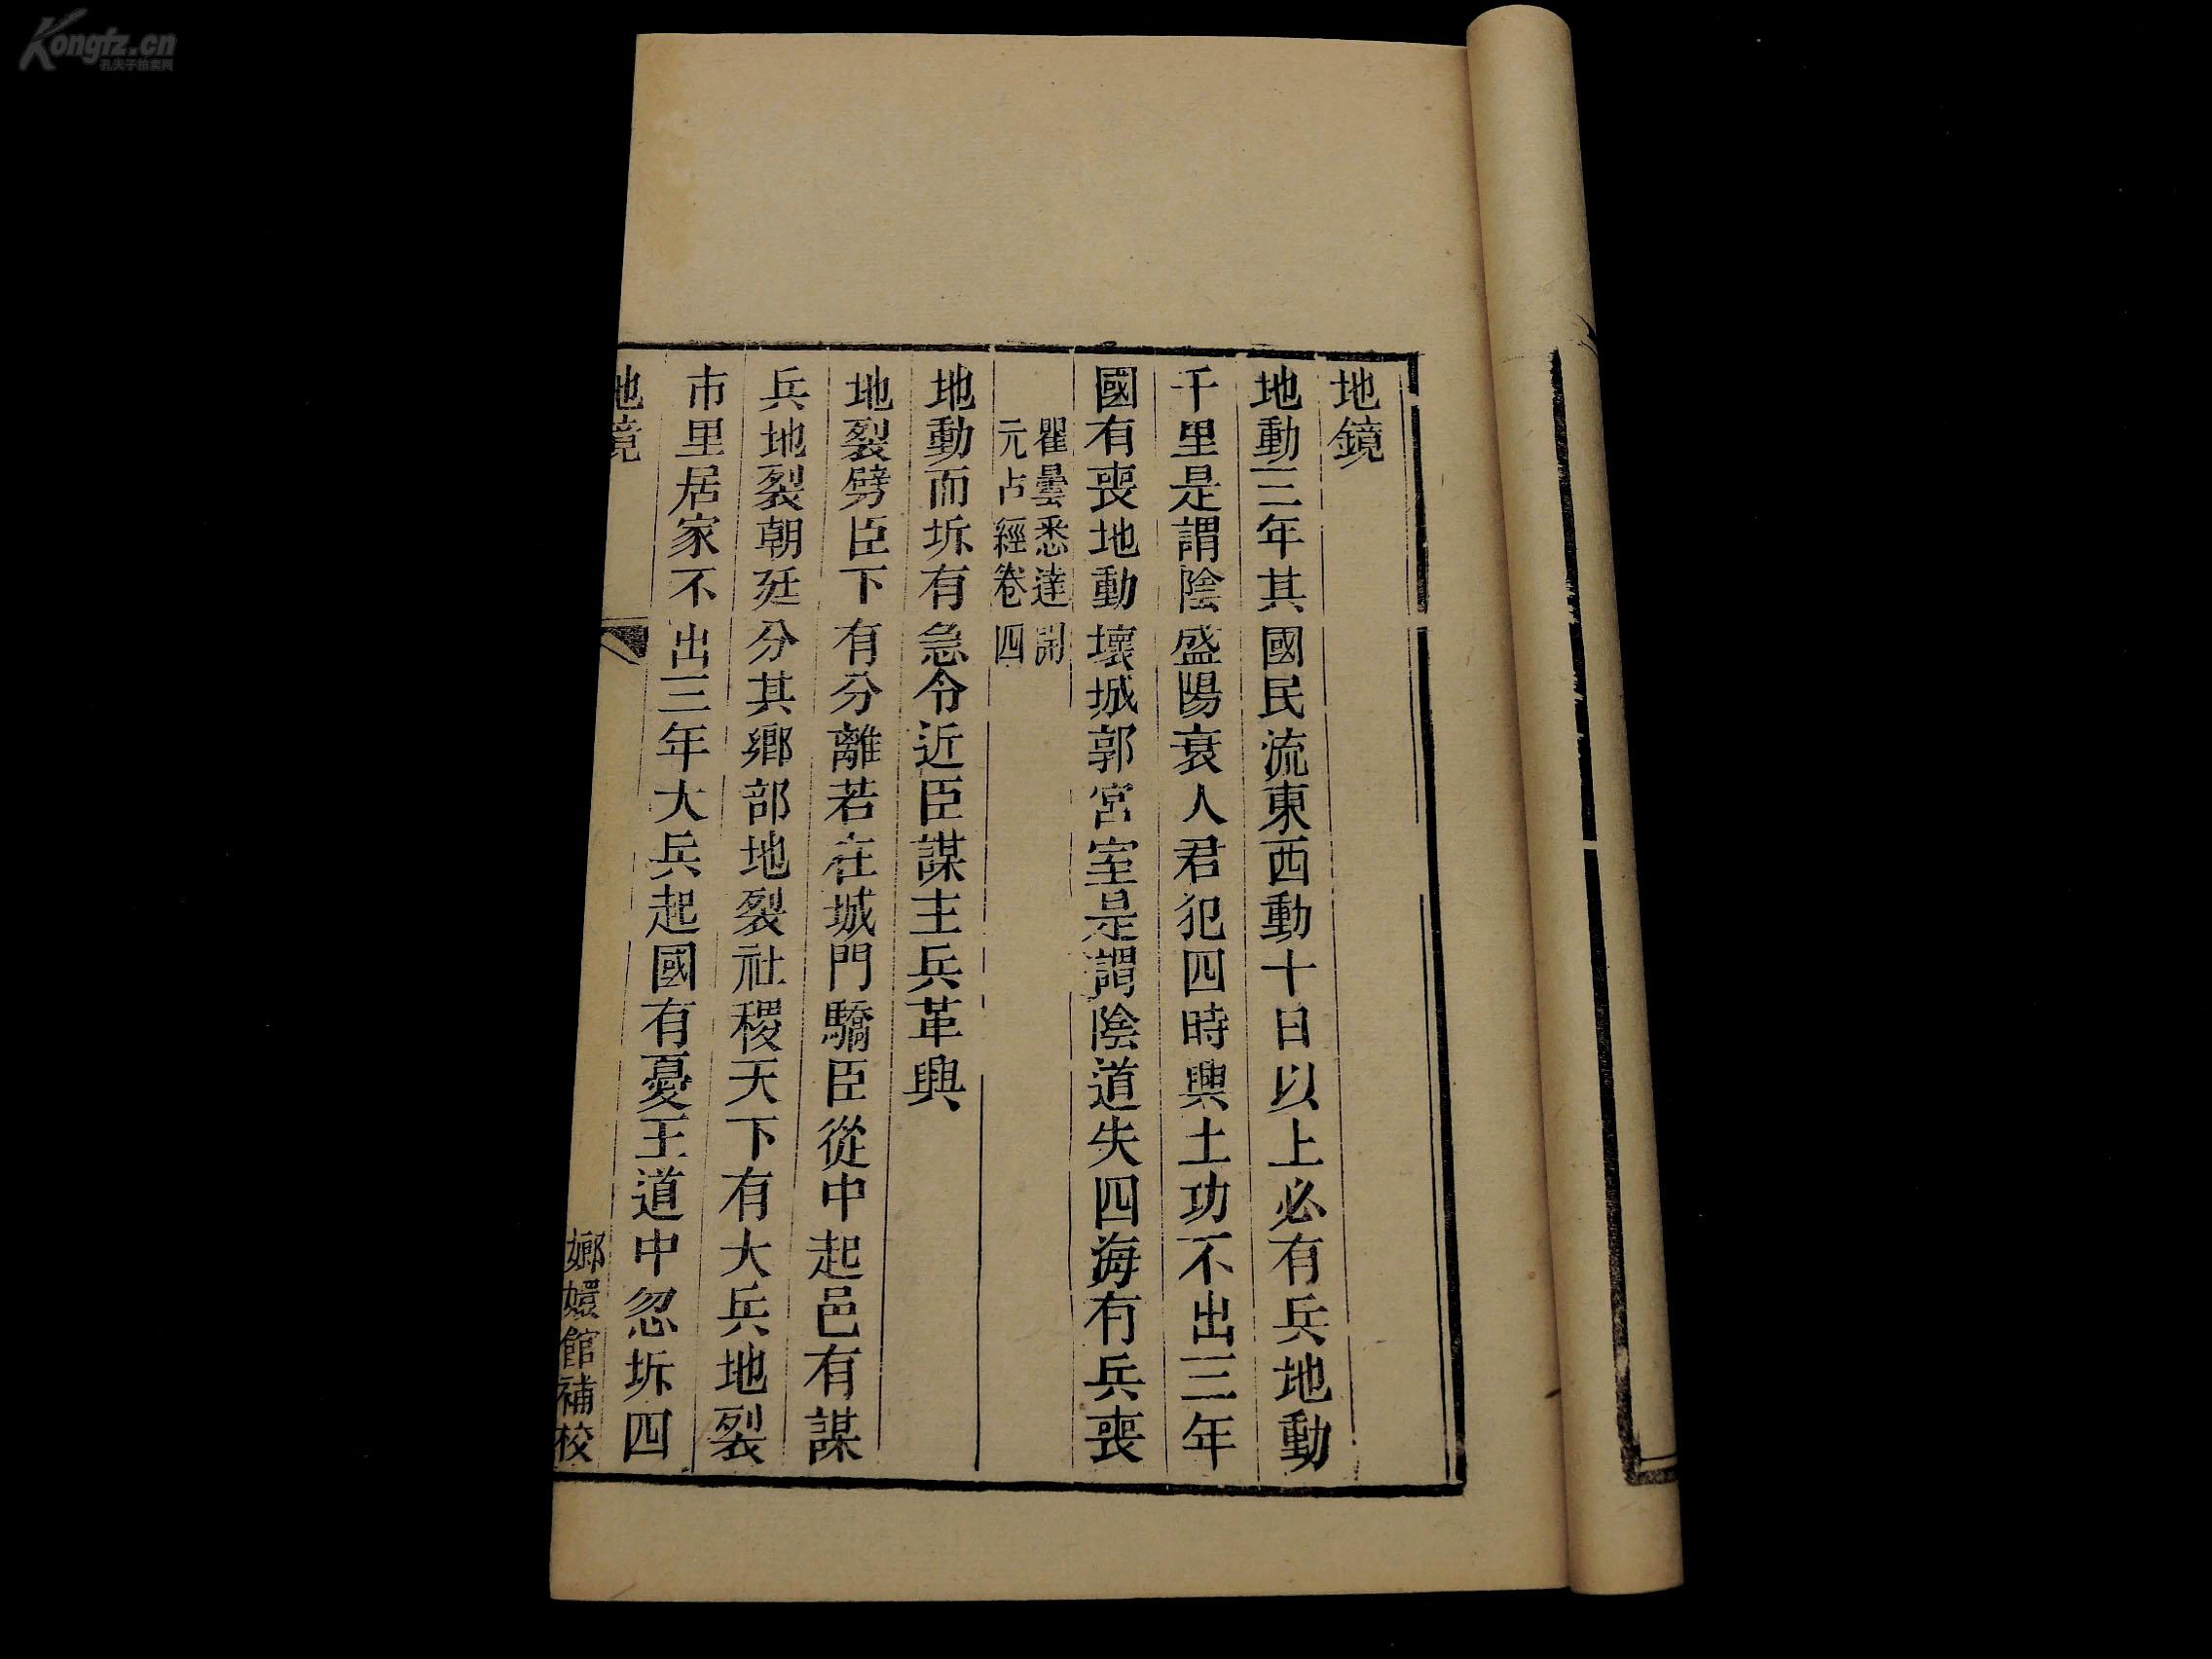 地鏡
地動三年其國民流東西動十日以上必有兵地動
千里是謂陰盛陽衰人君犯四時興土功不出三年
國有喪地動壞城郭宮室是謂陰道失四海有兵喪
瞿曇悉達開
元占經卷四
地動而坼有急令近臣謀主兵革興
地裂劈臣下有分離若在城門驕臣從中起邑有謀
兵地裂朝廷分其鄉部地裂社稷天下有大兵地裂
市里居家不出三年大兵起國有憂王道中忽坼四
地鏡
嫏嬛館補校
Kongfz.cn
孔夫子拍卖网